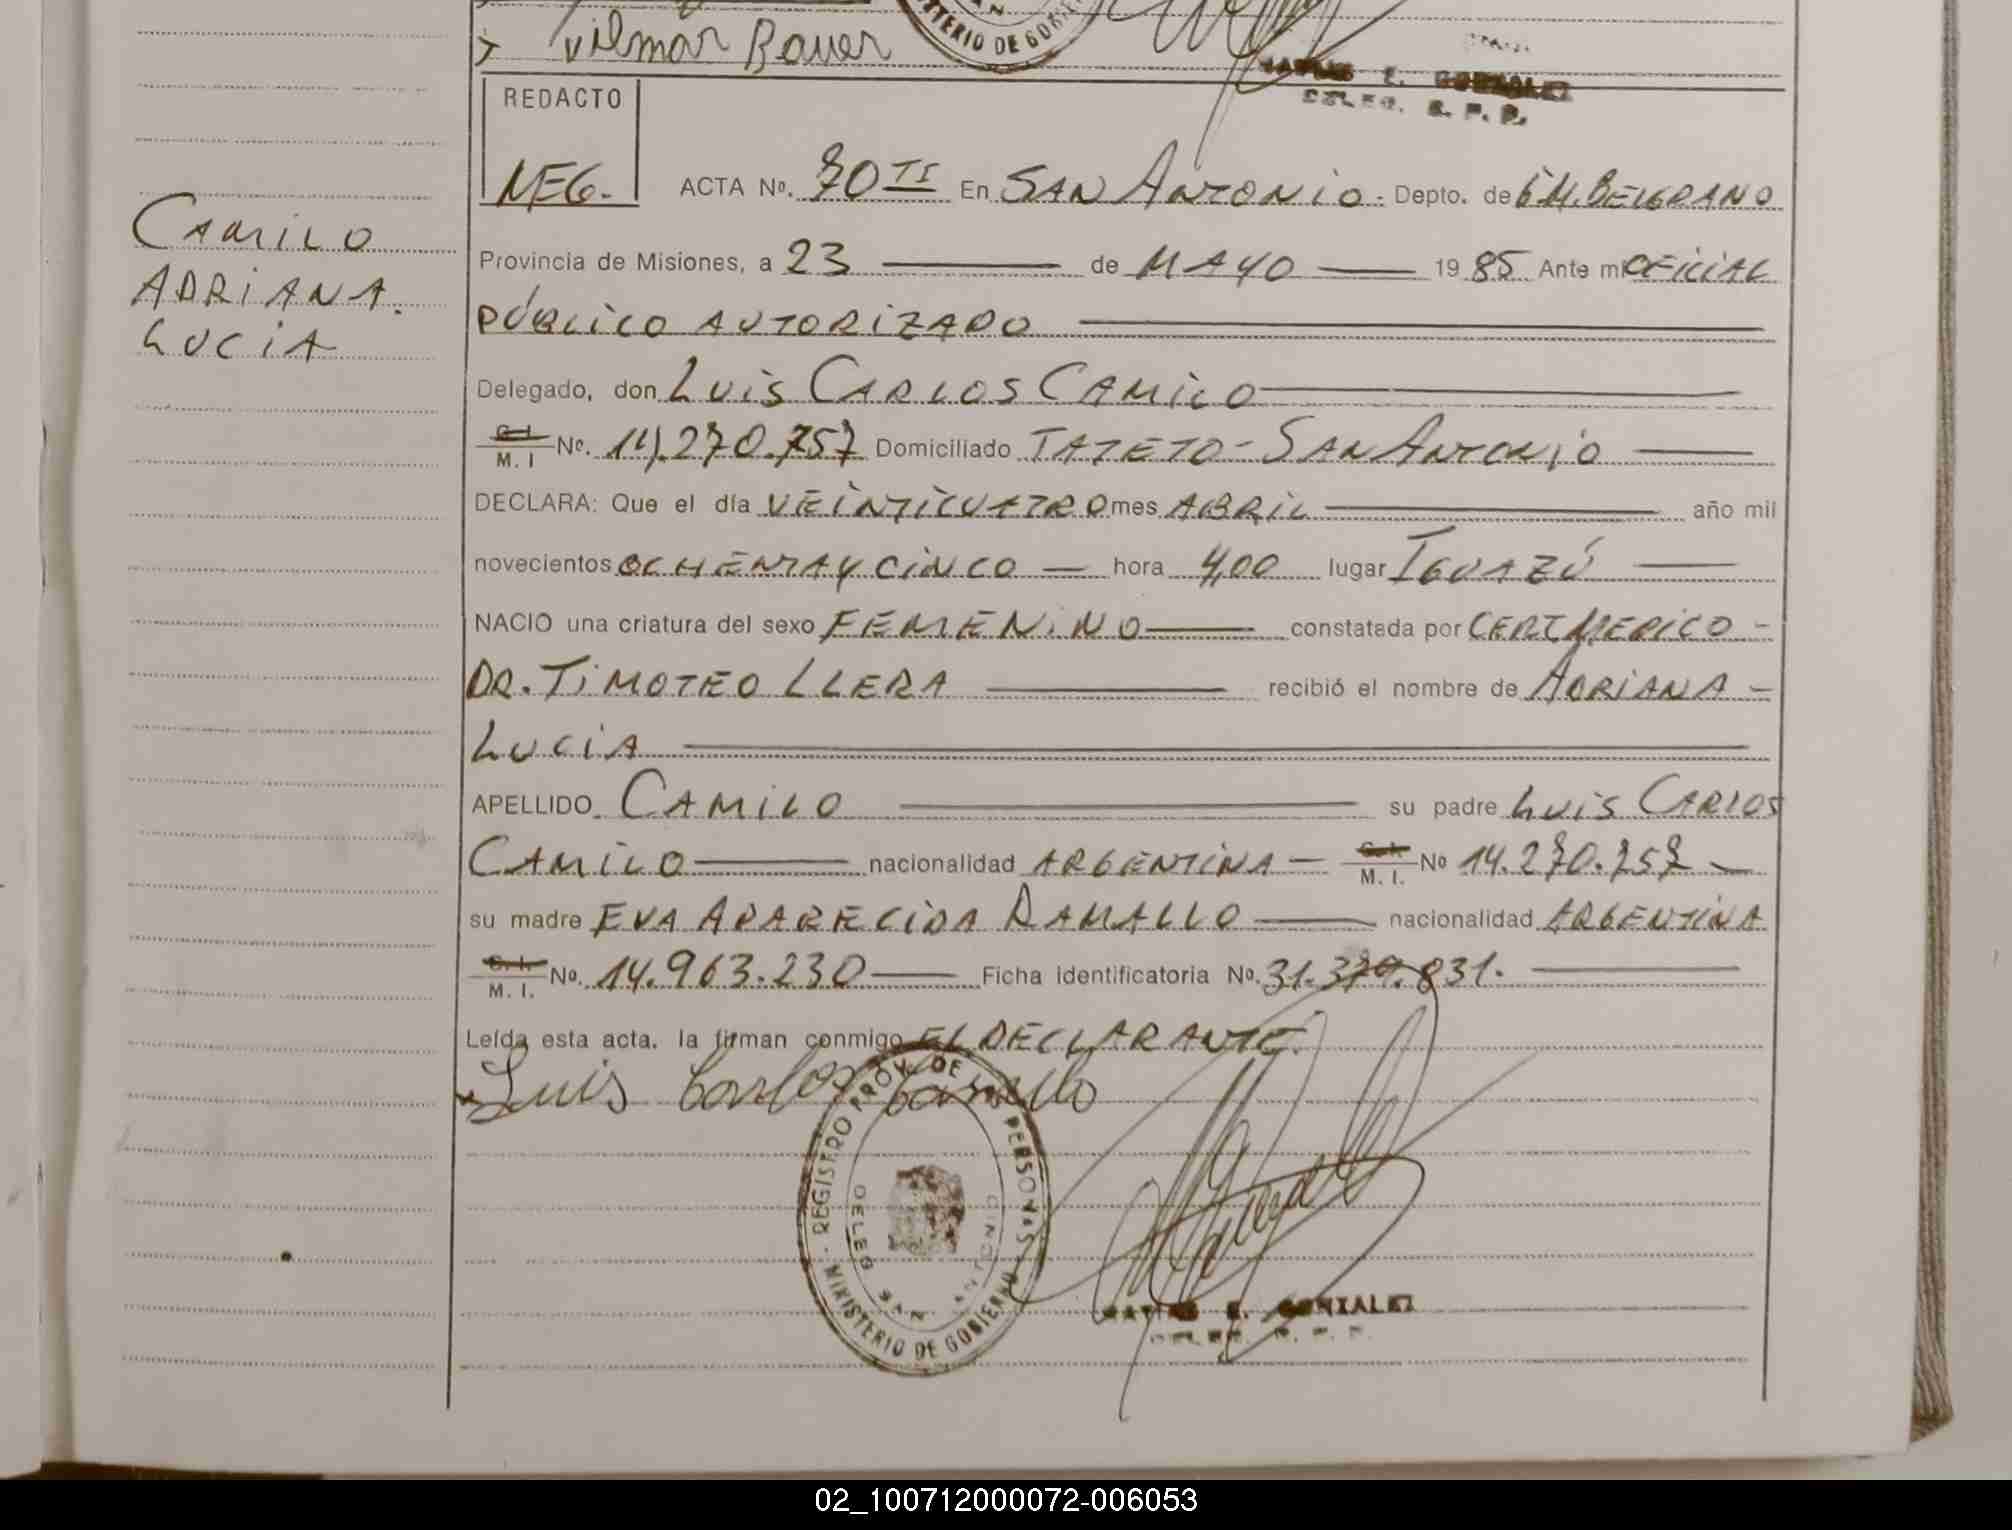 Vilmar Bauer
MINISTERIO DE GOBIERNO
E. GONZALEZ
DELEG. R. P. P.
REDACTO
MEG.
ACTA Nº. 70 TI En SAN ANTONIO. Depto. de G.M.BELGRANO
CAMILO
ADRIANA.
LUCIA
Provincia de Misiones, a 23 de MAYO 19 85 Ante mi OFICIAL
PÚBLICO AUTORIZADO
Delegado, don LUIS CARLOS CAMILO
C.I. M. I Nº. 14.270.757 Domiciliado TATETO - SAN ANTONIO
DECLARA: Que el día VEINTICUATRO mes ABRIL año mil
novecientos OCHENTA Y CINCO hora 4,00 lugar IGUAZÚ
NACIO una criatura del sexo FEMENINO constatada por CERT.MEDICO -
DR. TIMOTEO LLERA recibió el nombre de ADRIANA -
LUCIA
APELLIDO CAMILO su padre LUIS CARLOS
CAMILO nacionalidad ARGENTINA - C.I. M. I. Nº 14.270.757
su madre EVA APARECIDA RAMALLO nacionalidad ARGENTINA
C.I. M. I. Nº. 14.963.230 Ficha identificatoria Nº. 31.370.831.
Leída esta acta, la firman conmigo EL DECLARANTE.
Luis Carlos Camilo
REGISTRO PROV. DE LAS PERSONAS
DELEG. SAN ANTONIO
MINISTERIO DE GOBIERNO
E. GONZALEZ
DELEG. R. P. P.
02_100712000072-006053